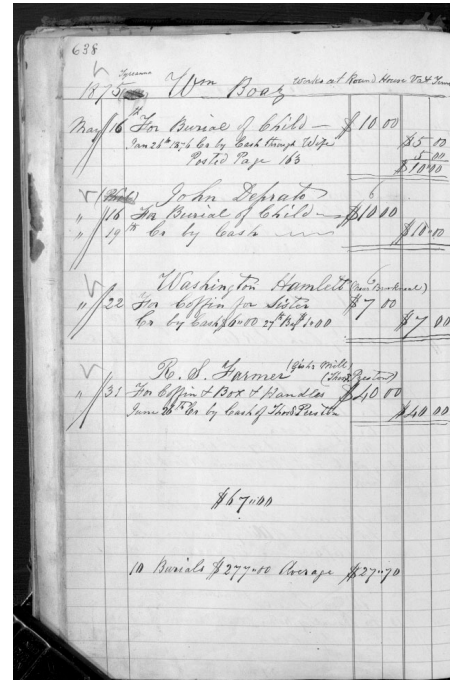 638
1875 Wm Boaz Works at Round House Va & Tenn
May 16th For Burial of Child — $10 00
Jan 28th 1876 Cr by Cash through Wife $5 00
Posted Page 163 5 00
$10.00
John Deprato 6
" 16 For Burial of Child — $10 00
" 19th Cr by Cash $10.00
Washington Hamlett
" 22 For Coffin for Sister $7 00
Cr by Cash $6=00 27th By $1=00 $7 00
R. S. Farmer
" 31 For Coffin & Box & Handles $40 00
June 26th Cr by Cash of Thos $40 00
$67"00
10 Burials $277"00 Average $27"70